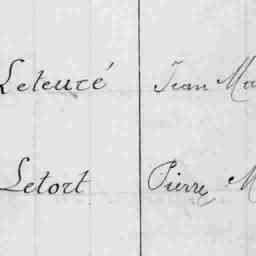 Leteuré Jean Ma
Letort Pierre M